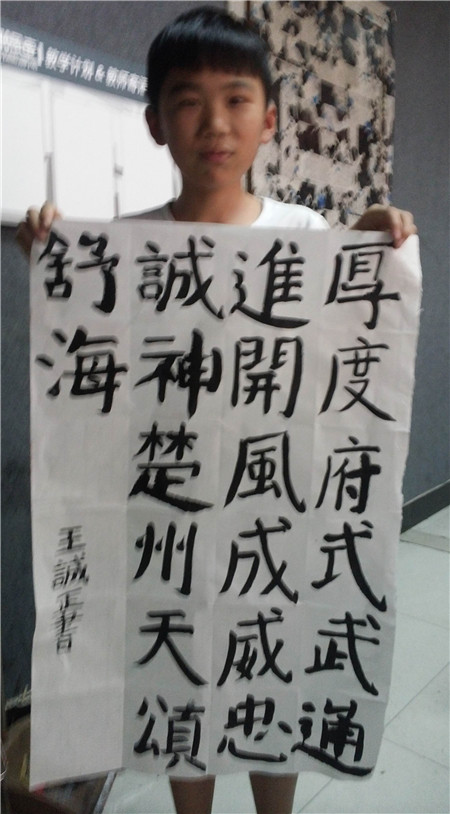 教学计划&教师
厚度府式武通
進開風成威忠
誠神楚州天頌
舒海
王誠正書